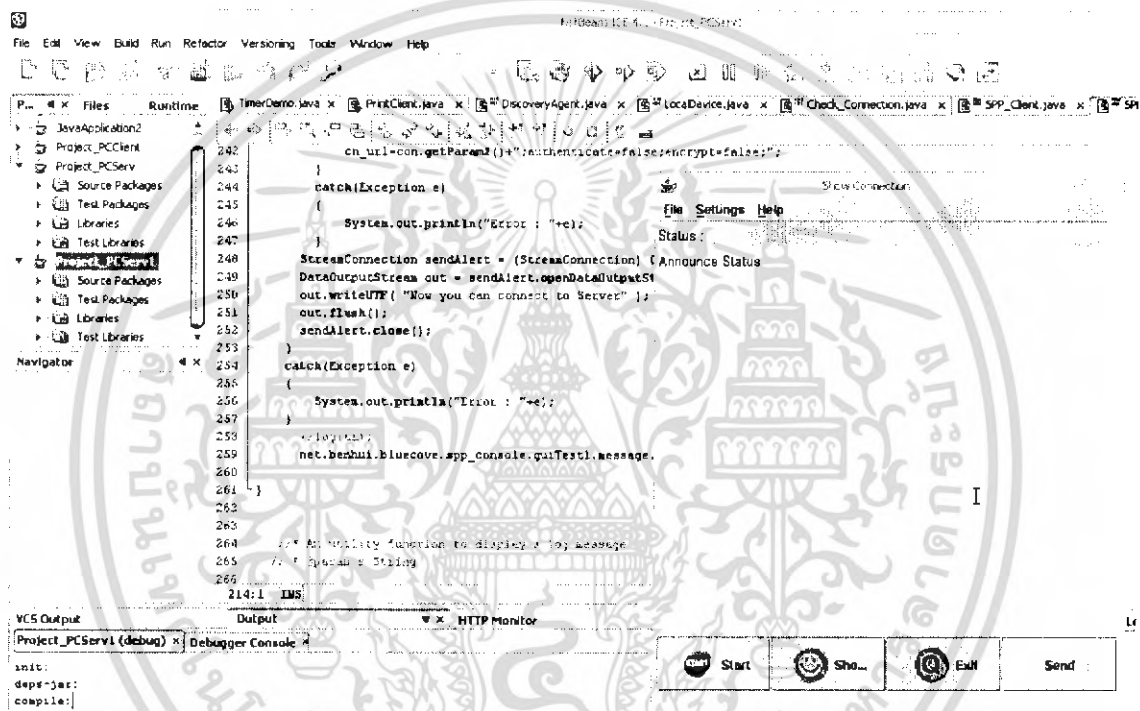 File Edit View Build Run Refactor Versioning Tools Window Help
P... Files Runtime
TimerDemo.java x PrintClient.java x DiscoveryAgent.java x LocaDevice.java x Check_Connection.java x SPP_Client.java x SPI
JavaApplication2
Project_PCClient
Project_PCServ
Source Packages
Test Packages
Libraries
Test Libraries
Project_PCServ1
Source Packages
Test Packages
Libraries
Test Libraries
Navigator
242 cn_url=con.getParam2()+";authenticate=false;encrypt=false;";
243 }
244 catch(Exception e)
245 {
246 System.out.println("Error : "+e);
247 }
248 StreamConnection sendAlert = (StreamConnection)
249 DataOutputStream out = sendAlert.openDataOutputSt
250 out.writeUTF( "Now you can connect to Server" );
251 out.flush();
252 sendAlert.close();
253 }
254 catch(Exception e)
255 {
256 System.out.println("Error : "+e);
257 }
258
259 net.benhui.bluecove.spp_console.guiTest1.message.
260
261 }
262
263
264 /* An utility function to display a log message
265 String
266
214:1 INS
Show Connection
File Settings Help
Status :
Announce Status
VCS Output Output HTTP Monitor
Project_PCServ1 (debug) x Debugger Console x
init:
deps-jar:
compile:
START Start Sho... Exit Send